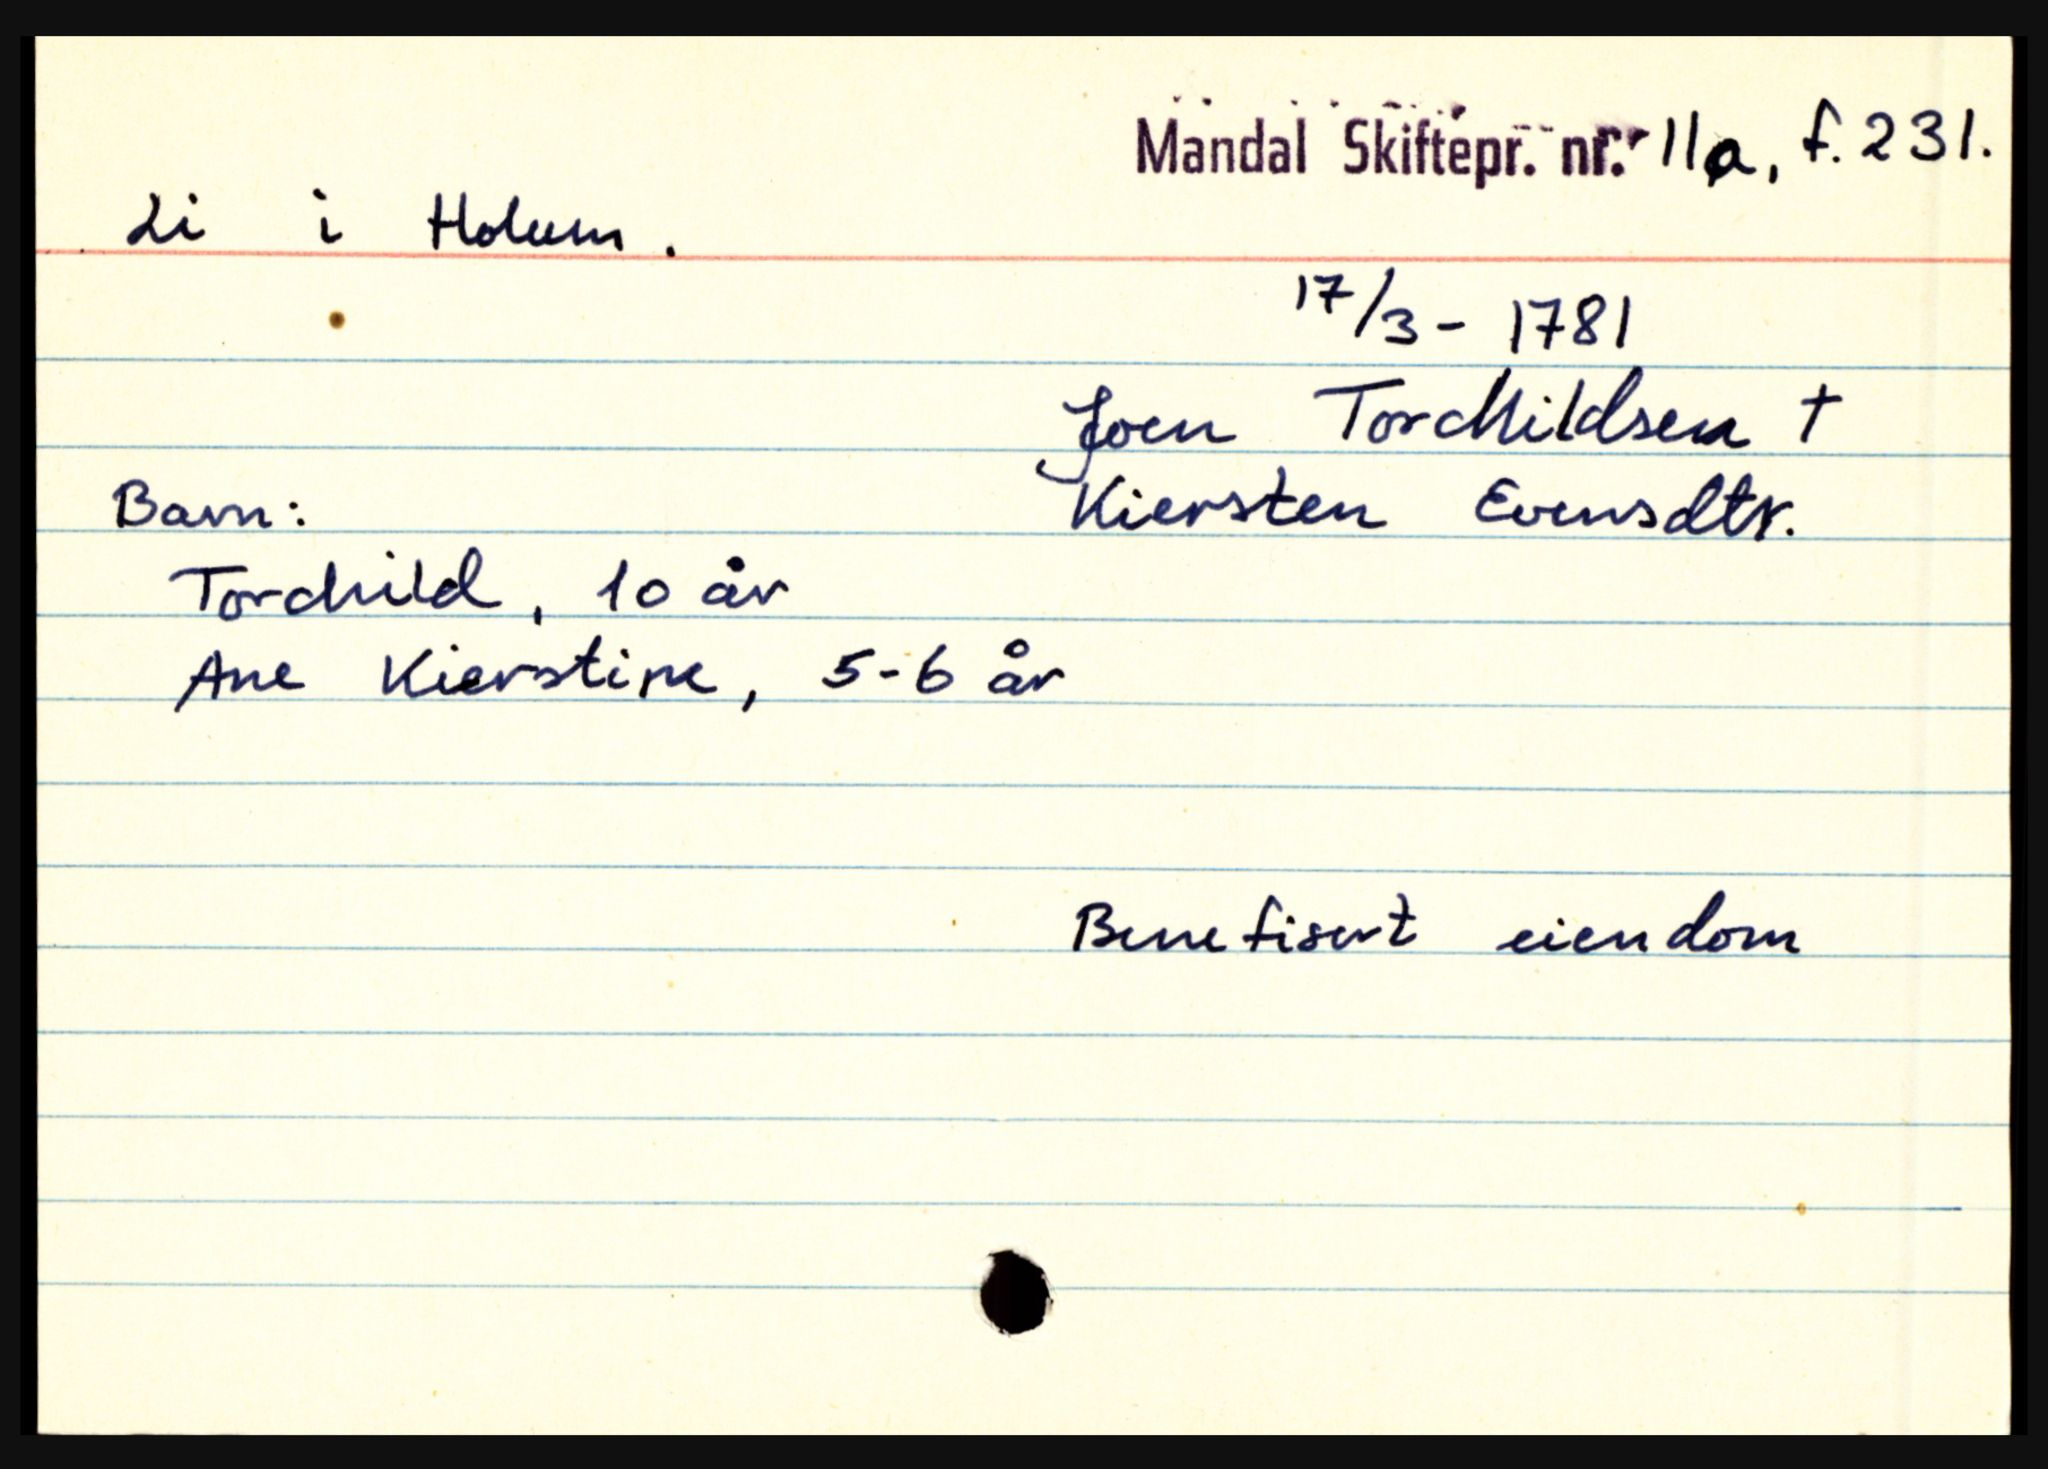 Mandal Skiftepr. nr. 11a, f. 231.
Li i Holum.
17/3 - 1781
Joen Torchildsen †
Kiersten Evensdtr.
Barn:
Torchild, 10 år
Ane Kierstine, 5-6 år
Benefisert eiendom